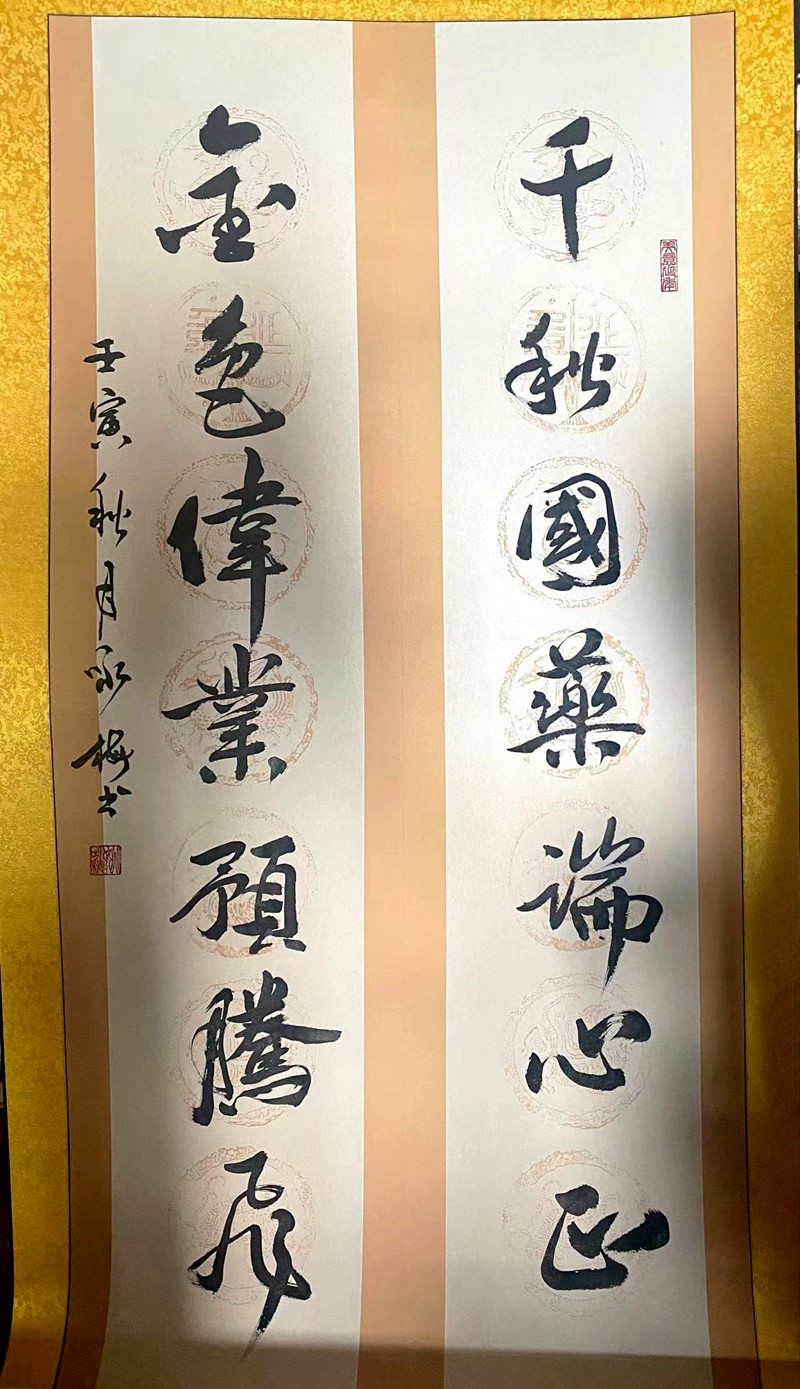 千秋國藥端心正
金色偉業預騰飛
壬寅秋月永梅书